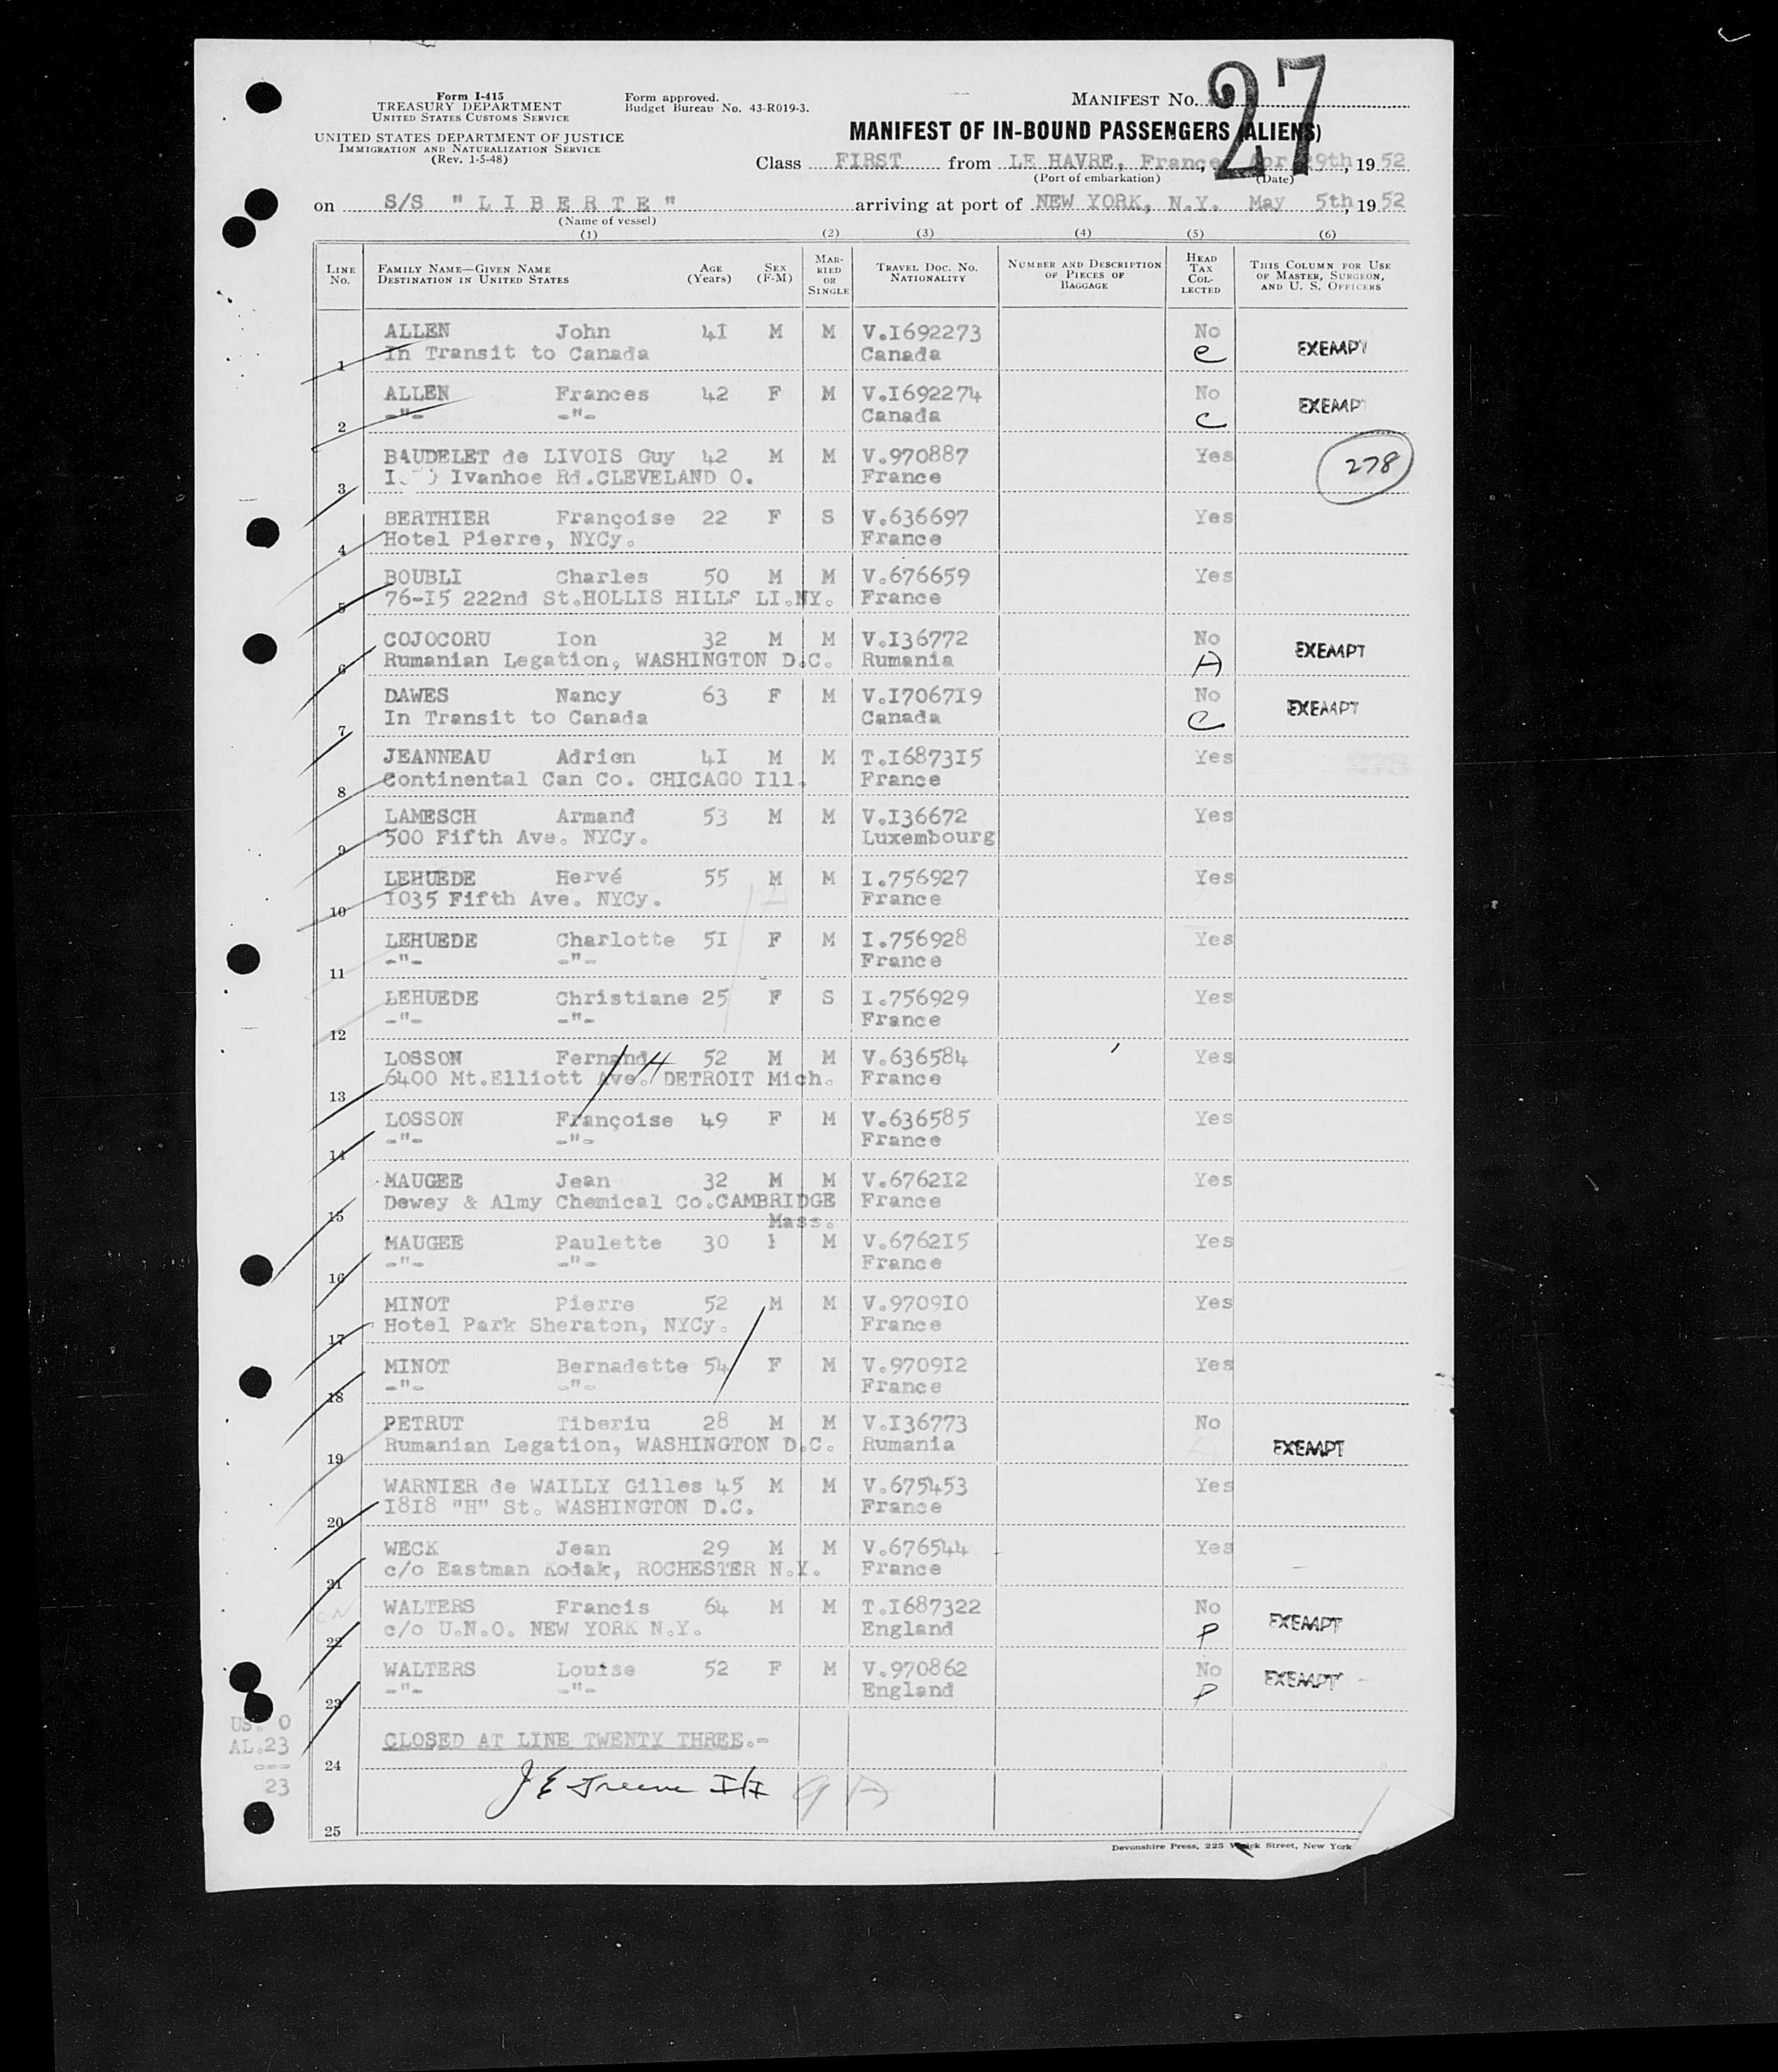 Form I-415
TREASURY DEPARTMENT
UNITED STATES CUSTOMS SERVICE
UNITED STATES DEPARTMENT OF JUSTICE
IMMIGRATION AND NATURALIZATION SERVICE
(Rev. 1-5-48)
Form approved.
Budget Bureau No. 43-R019-3.
MANIFEST No. 27
MANIFEST OF IN-BOUND PASSENGERS (ALIENS)
Class FIRST from LE HAVRE, France, Apr 29th, 1952
(Port of embarkation) (Date)
on S/S "LIBERTE" arriving at port of NEW YORK, N.Y. May 5th, 1952
(Name of vessel)
(1) (2) (3) (4) (5) (6)
LINE No. FAMILY NAME—GIVEN NAME DESTINATION IN UNITED STATES AGE (Years) SEX (F-M) MARRIED OR SINGLE TRAVEL DOC. NO. NATIONALITY NUMBER AND DESCRIPTION OF PIECES OF BAGGAGE HEAD TAX COLLECTED THIS COLUMN FOR USE OF MASTER, SURGEON, AND U. S. OFFICERS
ALLEN John 4I M M V.I692273 No
1 In Transit to Canada Canada C EXEMPT
ALLEN Frances 42 F M V.I692274 No
2 -"- -"- Canada C EXEMP
BAUDELET de LIVOIS Guy 42 M M V.970887 Yes 278
3 Ivanhoe Rd.CLEVELAND O. France
BERTHIER Françoise 22 F S V.636697 Yes
4 Hotel Pierre, NYCy. France
BOUBLI Charles 50 M M V.676659 Yes
5 76-I5 222nd St.HOLLIS HILLS LI.NY. France
COJOCORU Ion 32 M M V.I36772 No
6 Rumanian Legation, WASHINGTON D.C. Rumania A EXEMPT
DAWES Nancy 63 F M V.I7067I9 No
7 In Transit to Canada Canada C EXEMPT
JEANNEAU Adrien 4I M M T.I6873I5 Yes
8 Continental Can Co. CHICAGO Ill. France
LAMESCH Armand 53 M M V.I36672 Yes
9 500 Fifth Ave. NYCy. Luxembourg
LEHUEDE Hervé 55 M M I.756927 Yes
10 I035 Fifth Ave. NYCy. France
LEHUEDE Charlotte 5I F M I.756928 Yes
11 -"- -"- France
LEHUEDE Christiane 25 F S I.756929 Yes
12 -"- -"- France
LOSSON Fernand 52 M M V.636584 Yes
13 6400 Mt.Elliott Ave. DETROIT Mich. France
LOSSON Françoise 49 F M V.636585 Yes
14 -"- -"- France
MAUGEE Jean 32 M M V.6762I2 Yes
15 Dewey & Almy Chemical Co.CAMBRIDGE France
Mass.
MAUGEE Paulette 30 M V.6762I5 Yes
16 -"- -"- France
MINOT Pierre 52 M M V.9709I0 Yes
17 Hotel Park Sheraton, NYCy. France
MINOT Bernadette 54 F M V.9709I2 Yes
18 -"- -"- France
PETRUT Tiberiu 28 M M V.I36773 No
19 Rumanian Legation, WASHINGTON D.C. Rumania EXEMPT
WARNIER de WAILLY Gilles 45 M M V.675453 Yes
20 I8I8 "H" St. WASHINGTON D.C. France
WECK Jean 29 M M V.676544 Yes
21 c/o Eastman Kodak, ROCHESTER N.Y. France
WALTERS Francis 64 M M T.I687322 No
22 c/o U.N.O. NEW YORK N.Y. England P EXEMPT
WALTERS Louise 52 F M V.970862 No
23 -"- -"- England P EXEMPT
US. 0
AL.23
---
23
CLOSED AT LINE TWENTY THREE.-
24
J E Greene
25
Devonshire Press, 225 Varick Street, New York